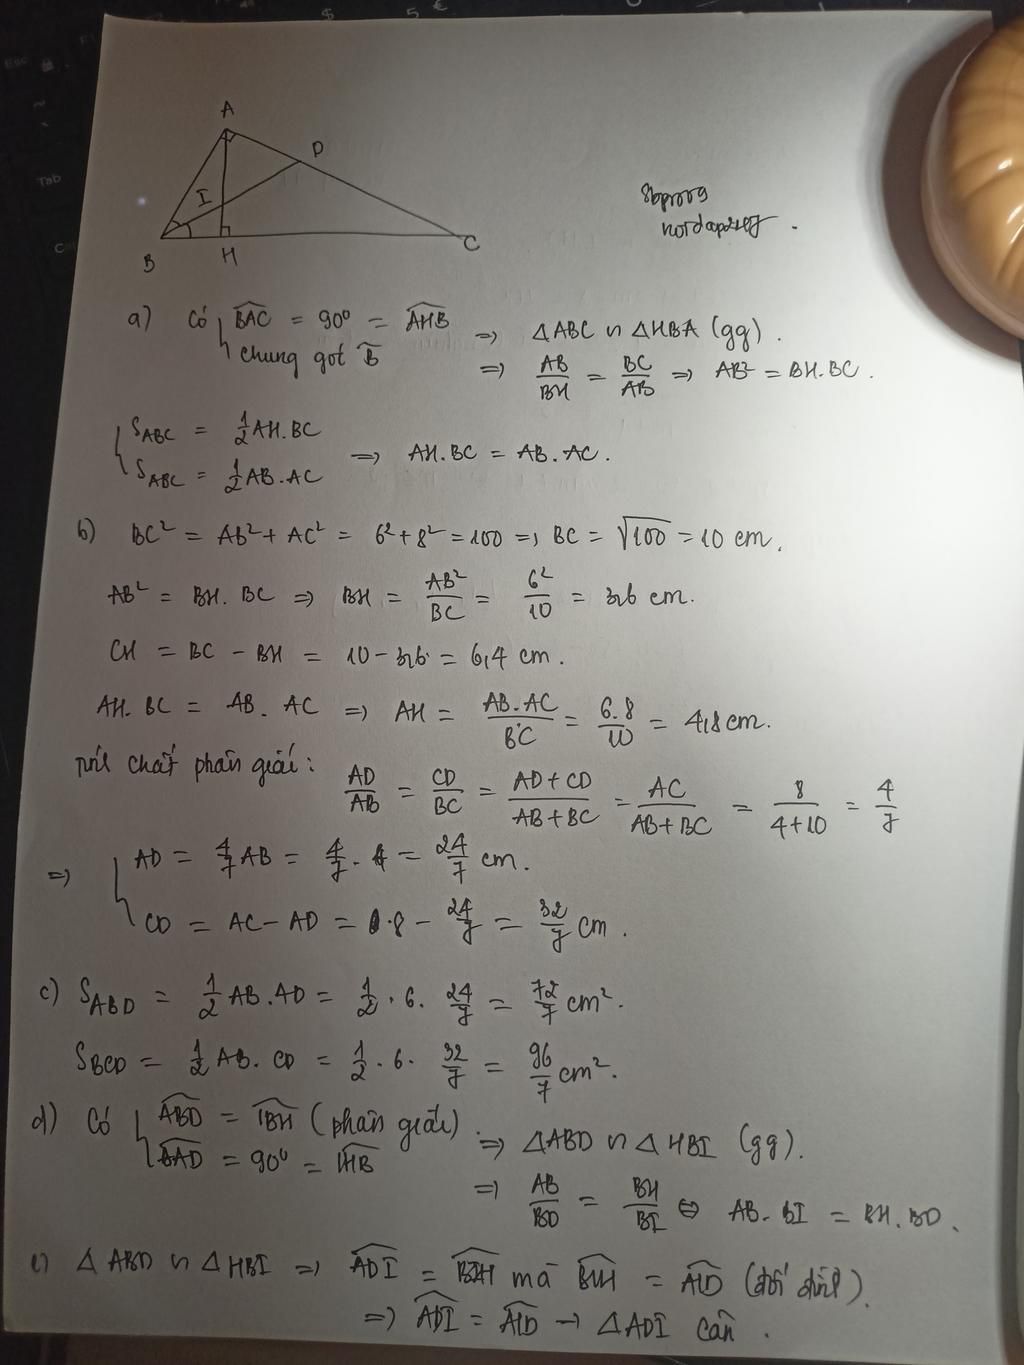 A
D
I
B
H
C
a) Có { BAC = 90° = AHB
chung góc B
=> ΔABC ∽ ΔHBA (gg).
=> AB/BH = BC/AB => AB² = BH.BC.
S_ABC = 1/2 AH.BC
S_ABC = 1/2 AB.AC
=> AH.BC = AB.AC.
b) BC² = AB² + AC² = 6² + 8² = 100 => BC = √100 = 10 cm.
AB² = BH.BC => BH = AB²/BC = 6²/10 = 3,6 cm.
CH = BC - BH = 10 - 3,6 = 6,4 cm.
AH.BC = AB.AC => AH = AB.AC/BC = 6.8/10 = 4,8 cm.
chất phân giác: AD/AB = CD/BC = AD+CD/AB+BC = AC/AB+BC = 8/4+10 = 4/7
=> { AD = 4/7 AB = 4/7 . = 24/7 cm.
CD = AC - AD = 8 - 24/7 = 32/7 cm.
c) S_ABD = 1/2 AB.AD = 1/2 . 6. 24/7 = 72/7 cm².
S_BCD = 1/2 AB.CD = 1/2 . 6. 32/7 = 96/7 cm².
d) Có { ABD = IBH (phân giác)
BAD = 90° = IHB
=> ΔABD ∽ ΔHBI (gg).
=> AB/BD = BH/BI ⇔ AB.BI = BH.BD.
e) ΔABD ∽ ΔHBI => ADI = BIH mà BIH = AID (đối đỉnh).
=> ADI = AID → ΔADI cân.